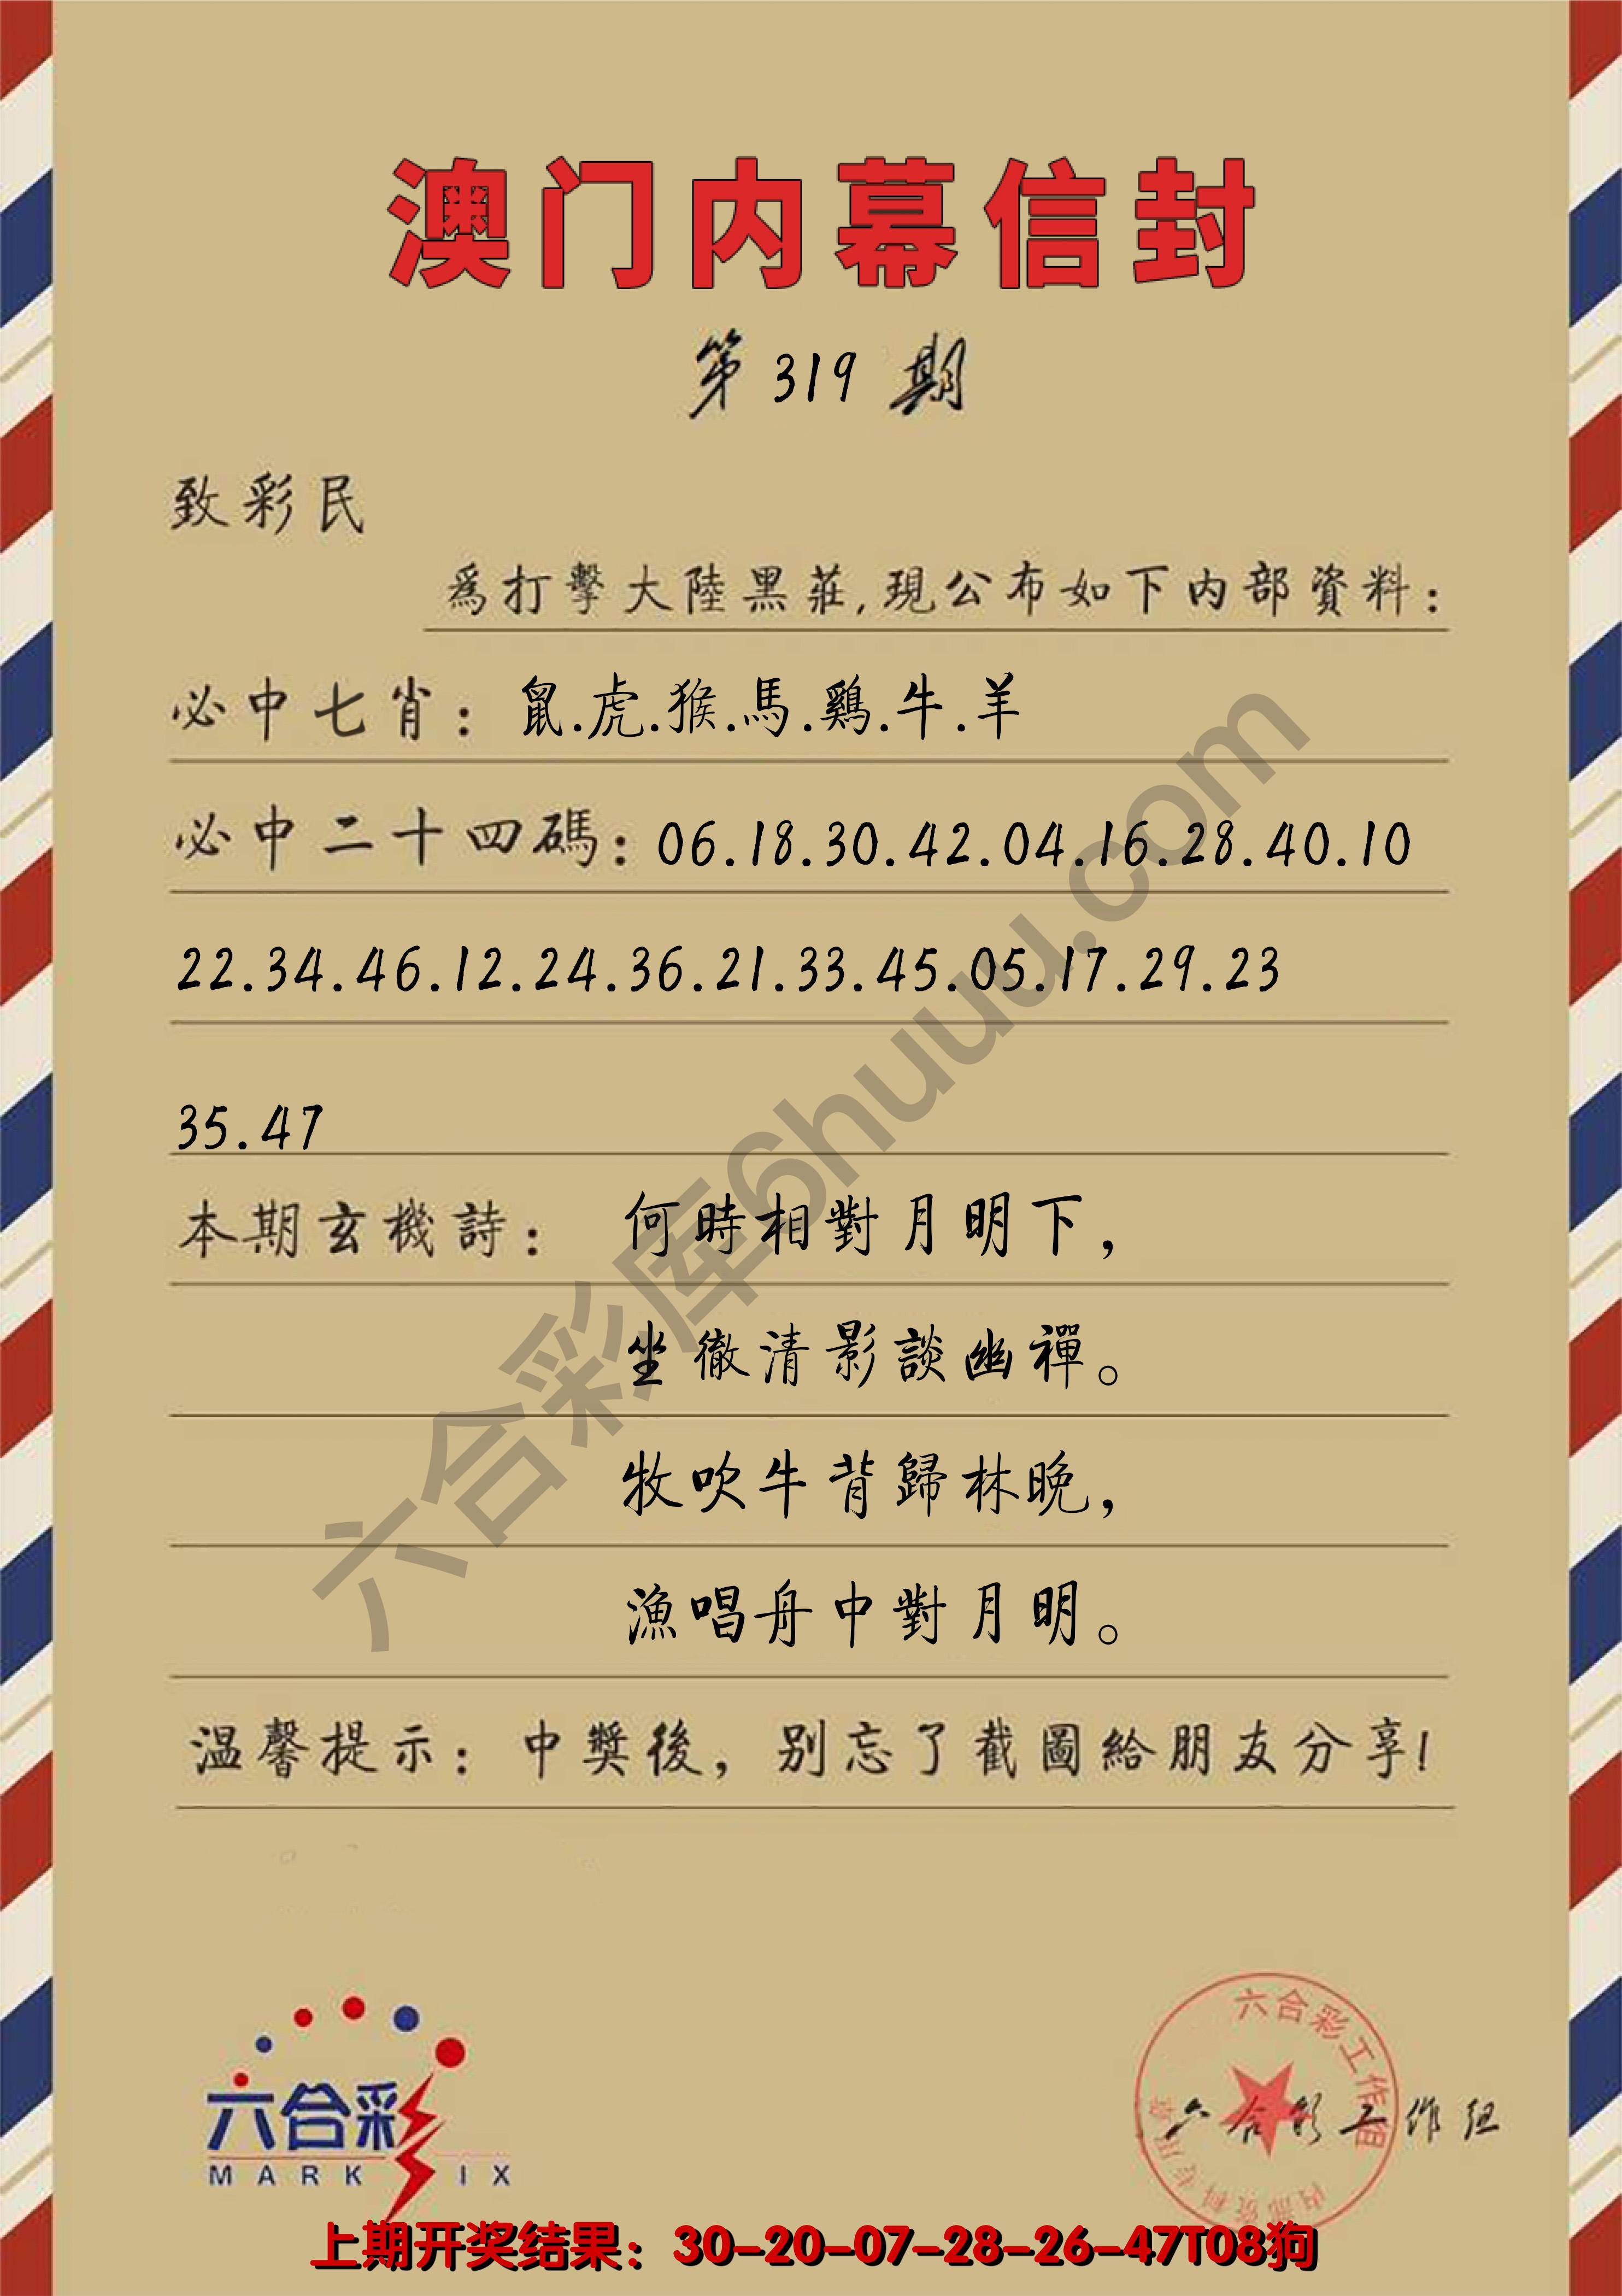 澳门内幕信封
第319期
致彩民
爲打擊大陸黑莊,現公布如下内部資料:
必中七肖: 鼠.虎.猴.馬.鷄.牛.羊
必中二十四碼: 06.18.30.42.04.16.28.40.10
22.34.46.12.24.36.21.33.45.05.17.29.23
35.47
本期玄機詩: 何時相對月明下,
坐徹清影談幽禪。
牧吹牛背歸林晚,
漁唱舟中對月明。
温馨提示: 中獎後, 别忘了截圖給朋友分享!
六合彩库6huuu.com
六合彩
MARK IX
六合彩工作组
内部资料专用章
六合彩工作组
上期开奖结果: 30-20-07-28-26-47T08狗